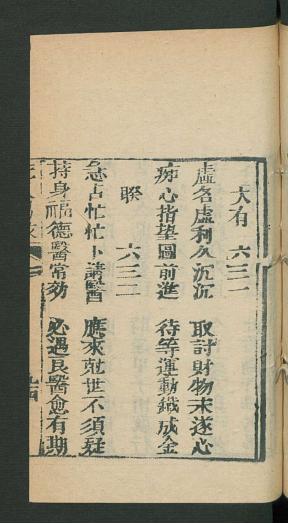 大有　六三一
虛名虛利久沉沉　取討財物未遂心
痴心指望圖前進　待等運動鐵成金
睽　六三二
急占忙忙卜請醫　應來尅世不須疑
持身福德醫常効　必遇良醫愈有期